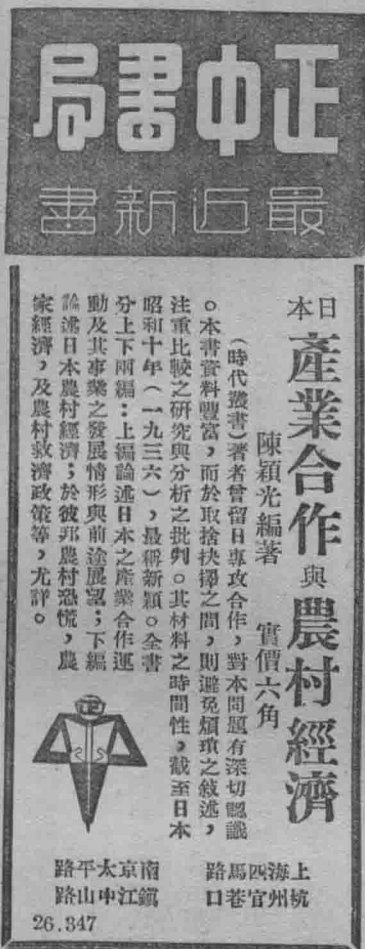 正中書局
最近新書
日本產業合作與農村經濟
陳穎光編著 實價六角
(時代叢書)著者曾留日專攻合作,對本問題有深切認識
。本書資料豐富,而於取捨抉擇之間,則避免煩瑣之敘述,
注重比較之研究與分析之批判。其材料之時間性,截至日本
昭和十年(一九三六),最稱新穎。全書
分上下兩編:上編論述日本之產業合作運
動及其事業之發展情形與前途展望;下編
論述日本農村經濟;於彼邦農村恐慌,農
家經濟,及農村救濟政策等,尤詳。
上海四馬路
杭州官巷口
南京太平路
鎮江中山路
26.347